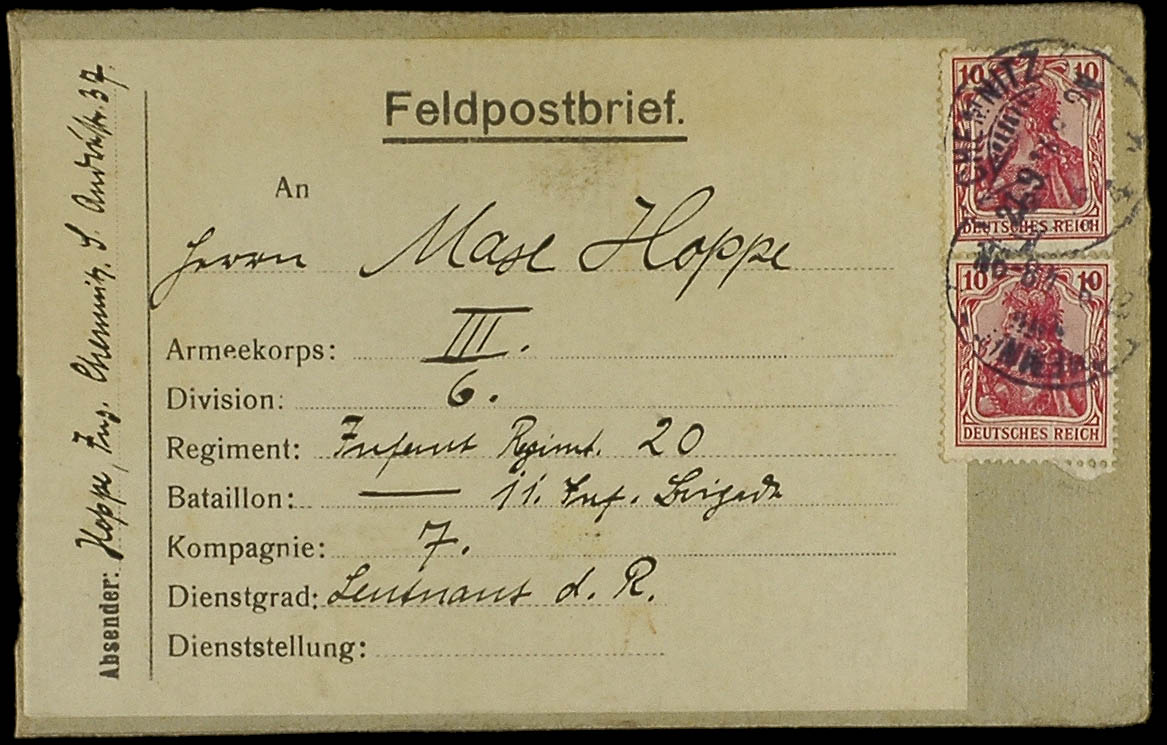 Feldpostbrief.
An
Herrn Max Hoppe
Armeekorps: III.
Division: 6.
Regiment: Infant Regimt. 20
Bataillon: — 11. Inf. Brigade
Kompagnie: 7.
Dienstgrad: Leutnant d. R.
Dienststellung:
Absender: Hoppe, Ing. Chemnitz. S. Andréstr. 37.
10 10
DEUTSCHES REICH
10 10
DEUTSCHES REICH
CHEMNITZ